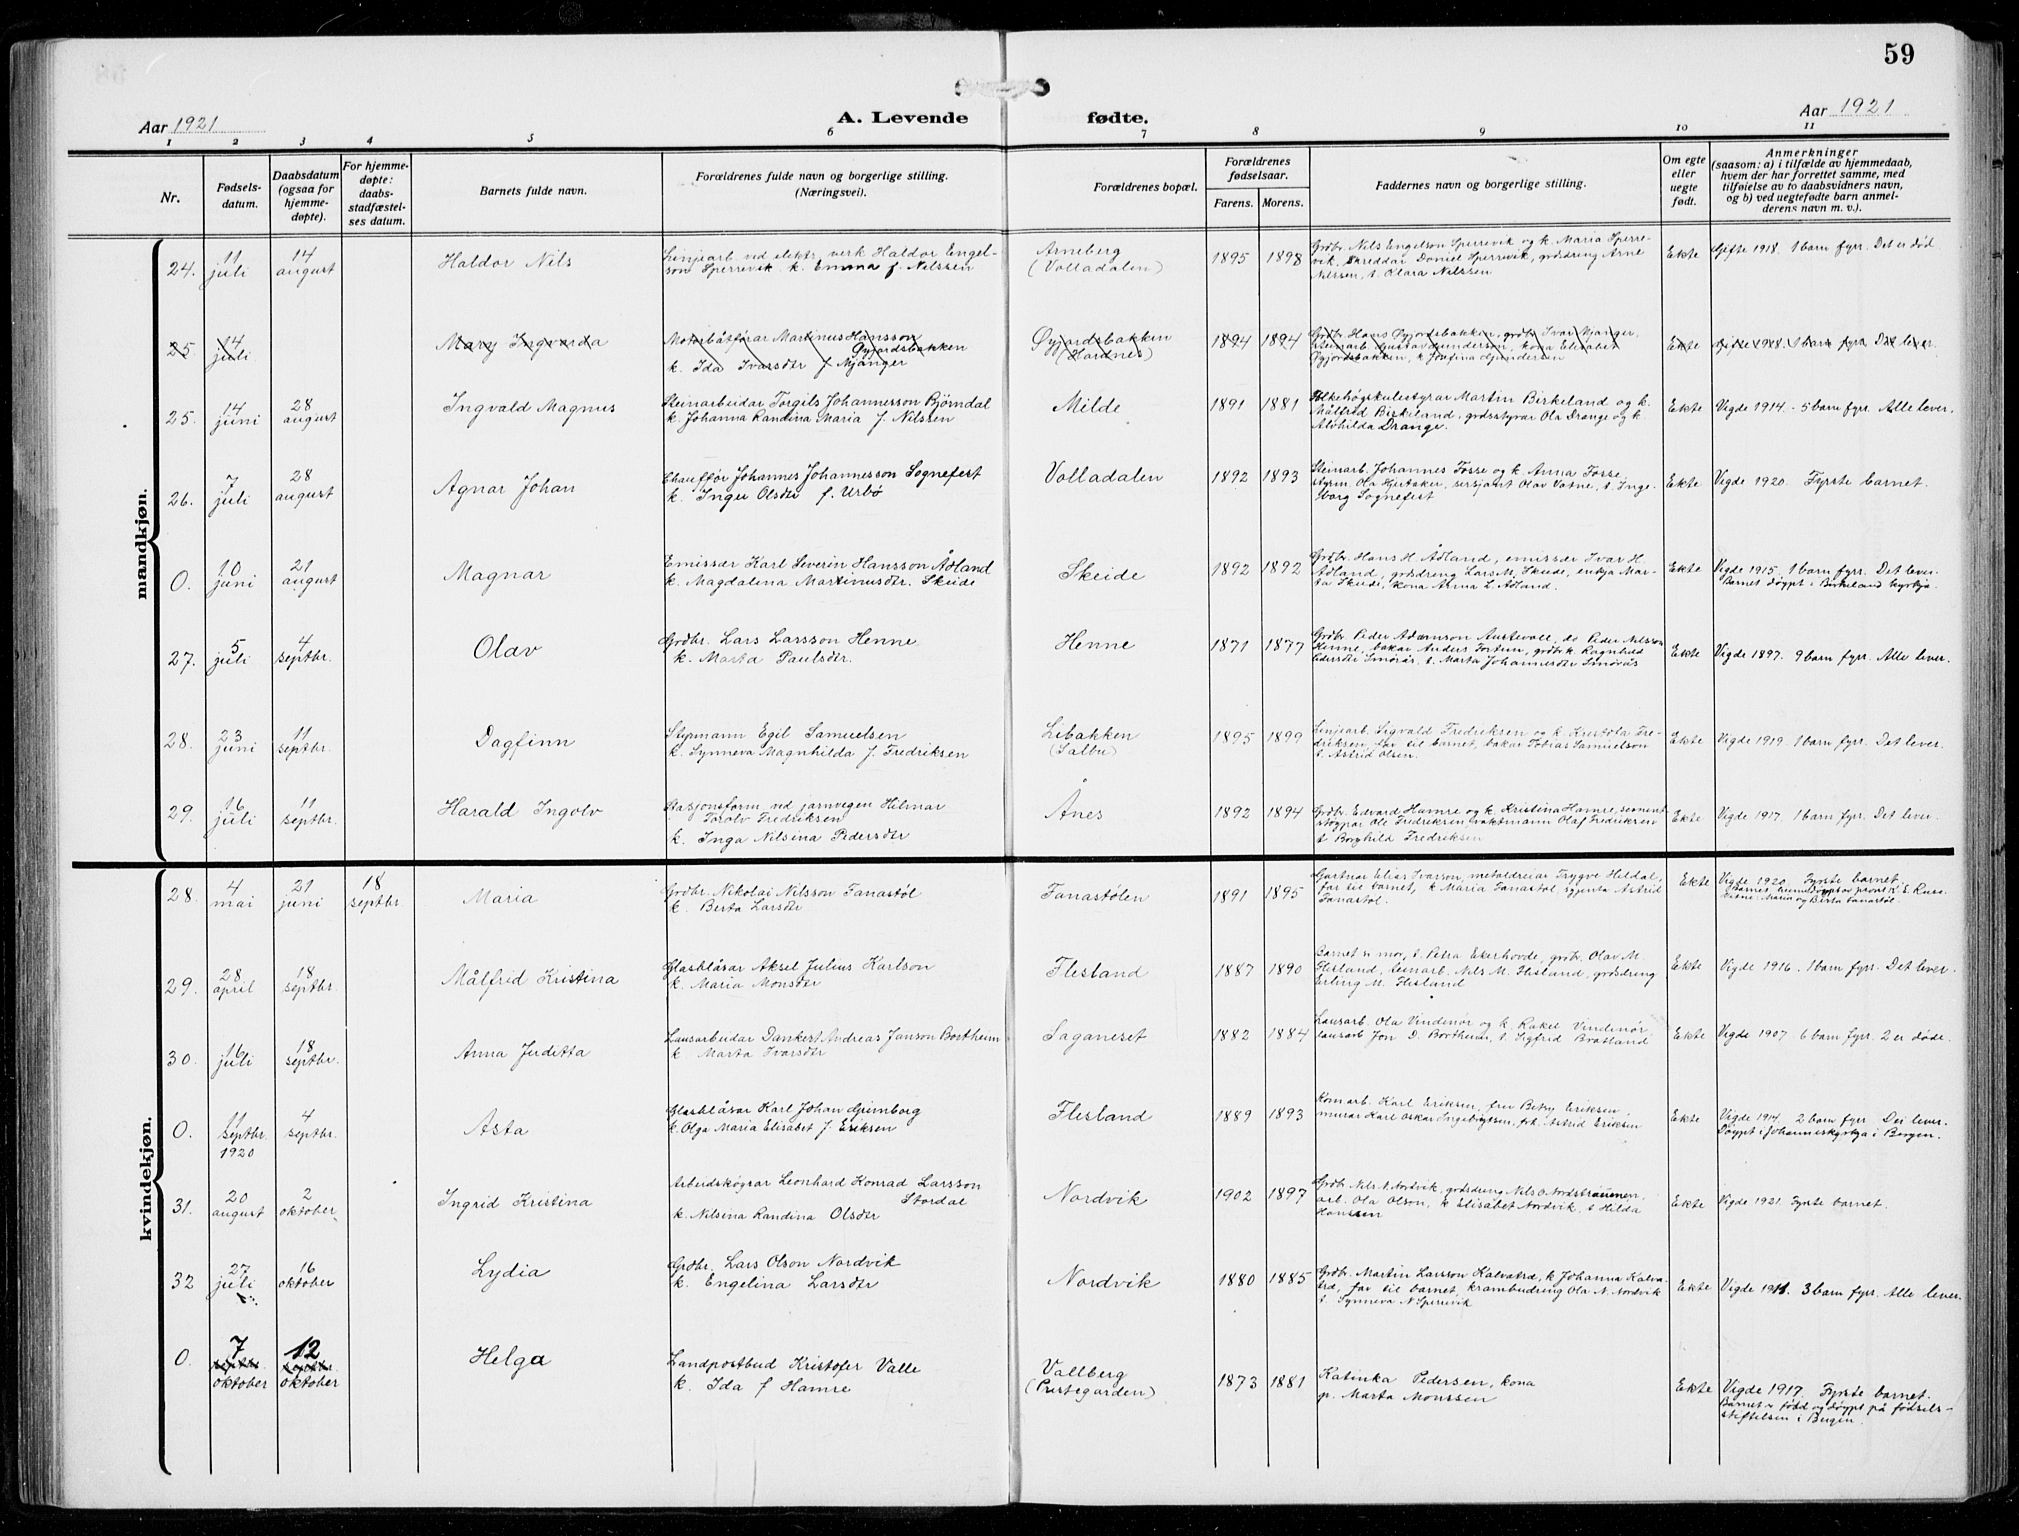 59
Aar 1921
A. Levende fødte.
Aar 1921
1 2 3 4 5 6 7 8 9 10 11
Nr.
Fødsels-
datum.
Daabsdatum
(ogsaa for
hjemme-
døpte).
For hjemme-
døpte:
daabs-
stadfæstel-
ses datum.
Barnets fulde navn.
Forældrenes fulde navn og borgerlige stilling.
(Næringsvei).
Forældrenes bopæl.
Forældrenes
fødselsaar.
Farens. Morens.
Faddernes navn og borgerlige stilling.
Om egte
eller
uegte
født.
Anmerkninger
(saasom: a) i tilfælde av hjemmedaab,
hvem der har forrettet samme, med
tilføielse av to daabsvidners navn,
og b) ved uegtefødte barn anmel-
derens navn m. v.).
mandkjøn.
24.
11
juli
14
august
Haldor Nils
Linjearb ved elektr. verk Haldor Engel-
son Sperrevik k. Emma f. Nilssen
Arneberg
(Volladalen)
1895 1898
Grdbr. Nils Engelson Sperrevik og k. Maria Sperre-
vik. Skreddar Daniel Sperrevik, grdsdreng Arne
Nilssen, t. Olara Nilssen
Ekte
Gifte 1918. 1 barn fyrr. Det er død.
25
14
juli
Mary Ingvarda
Motorbåtførar Martinus Hansson
Gyjordsbakken
k. Ida Ivarsdtr f. Mjånger
Gyjordsbakken
(Hordnes)
1894 1894
Grdbr. Hans Gyjordsbakken, grdbr. Ivar Mjånger.
Steinarb. Gustav Gundersen, kona Elisabet
Gyjordsbakken, k Josfina Gundersen
Ekte
Gifte 1918. 1 barn fyrr Det lever.
25.
14
juni
28
august
Ingvald Magnus
Steinarbeidar Torgils Johannesson Bjørndal
k. Johanna Randina Maria f. Nilssen
Milde
1891 1881
Folkehøgskulestyrar Martin Birkeland og k.
Målfrid Birkeland, grdsstyrar Ola Drange og k.
Alvhilda Drange.
Ekte
Vigde 1914. 5 barn fyr. Alle lever.
26.
7
juli
28
august
Agnar Johan
Chauffør Johannes Johannesson Sognefest
k. Inger Olsdtr f. Urbø
Volladalen
1892 1893
Steinarb. Johannes Fosse og k. Anna Fosse
styrm. Ola Hjertaker, sersjant Olav Vatne, t. Inge-
borg Sognefest
Ekte
Vigde 1920. Fyrste barnet.
0.
10
juni
21
august
Magnar
Emissær Karl Severin Hansson Ådland
k. Magdalena Martinusdtr. Skeide
Skeide
1892 1892
Grdbr. Hans H. Ådland, emissær Ivar H.
Ådland, grdsdreng Lars M. Skeide, enkja Mar-
ta Skeide, kona Anna L. Ådland.
Ekte
Vigde 1915. 1 barn fyr. Det lever.
Barnet døypt i Birkeland kyrkja.
27.
5
juli
4
septbr.
Olav
Grdbr. Lars Larsson Henne
k. Marta Paulsdtr.
Henne
1871 1877
Grdbr. Peder Adamson Austevoll, do Peder Nilsson
Henne, bakar Anders Fortun, grdbrk Ragnhild
Pedersdtr Smørås. t. Marta Johannesdtr Smørås
Ekte
Vigde 1897. 9 barn fyrr. Alle lever.
28.
23
juni
11
septbr.
Dagfinn
Slepmann Egil Samuelsen
k. Synneva Magnhilda f. Fredriksen
Libakken
(Salbu)
1895 1899
Linjearb. Sigvald Fredriksen og k. Kristofa Fre-
driksen, far til barnet, bakar Tobias Samuelson
t. Astrid Olsen.
Ekte
Vigde 1919. 1 barn fyr. Det lever.
29.
16
juli
11
septbr.
Harald Ingolv
Stasjonsform. ved jarnvegen Hilmar
Torolv Fredriksen
k. Inga Nilsina Pedersdtr
Ånes
1892 1894
Grdbr. Edvard Hamre og k. Kristina Hamre, sement
støypar Ole Fredriksen, vaktmann Olaf Fredriksen
t Borghild Fredriksen
Ekte
Vigde 1917. 1 barn fyrr. Det lever.
kvindekjøn.
28.
4
mai
21
juni
18
septbr.
Maria
Grdbr. Nikolai Nilsson Fanastøl
k. Berta Larsdtr
Fanastølen
1891 1895
Gartnar Elias Ivarson, metaldreiar Trygve Hildal,
far til barnet, k Maria Fanastøl sgjenta Astrid
Fanastøl.
Ekte
Vigde 1920. Fyrste barnet.
Vitne: Maria og Berta Fanastøl.
29.
28
april
18
septbr.
Målfrid Kristina
Glasblåsar Aksel Julius Karlson
k. Maria Monsdtr
Flesland
1887 1890
Barnet s mor, t. Petra Ekerhovde, grdbr. Olav M.
Flesland, Steinarb. Nils M. Flesland, grdsdreng
Erling M. Flesland
Ekte
Vigde 1916. 1 barn fyr. Det lever.
30.
16
juli
18
septbr.
Anna Juditta
Lausarbeidar Dankert Andreas Janson Bortheim
k. Marta Ivarsdtr
Saganeset
1882 1884
Lausarb. Ola Vindenør og k. Rakel Vindenør
Lausarb Jon D. Bortheim, t. Sigfrid Bratland
Ekte
Vigde 1907 6 barn fyr. 2 er døde.
0.
11
septbr.
1920
4
septbr.
Asta
Glasblåsar Karl Johan Grimborg
k. Olga Maria Elisabet f. Eriksen
Flesland
1889 1893
Komarb. Karl Eriksen, fru Betsy Eriksen,
murar Karl Oskar Ingebrigtsen, frk. Astrid Eriksen
Ekte
Vigde 1914. 2 barn fyr. Dei lever.
Døypt i Johanneskyrkja i Bergen.
31.
20
august
2
oktober
Ingrid Kristina
Arbeidskøyrar Leonhard Konrad Larsson
Stordal
k. Nilsina Randina Olsdtr
Nordvik
1902 1897
Grdbr Nils N. Nordvik, grdsdreng Nils O Nordstraumen,
arb. Ola Olson, k Elisabet Nordvik, t Hilda
Hanssen
Ekte
Vigde 1921. Fyrste barnet.
32
27
juli
16
oktober
Lydia
Grdbr. Lars Olson Nordvik
k. Engelina Larsdtr
Nordvik
1880 1885
Grdbr. Martin Larsson Kalvatræ, k Johanna Kalva-
træ, far til barnet, krambudreng Ola N. Nordvik
t. Synneva N Sperrevik
Ekte
Vigde 1911. 3 barn fyr. Alle lever.
0.
7
septbr.
oktober
12
septbr.
oktober
Helga
Landpostbud Kristofer Valle
k. Ida f Hamre
Vallberg
(Prestegarden)
1873 1881
Katinka Pedersen, kona
p. Marta Monssen
Ekte
Vigde 1917. Fyrste barnet.
Barnet er fødd og døypt på fødsels-
stiftelsen i Bergen.